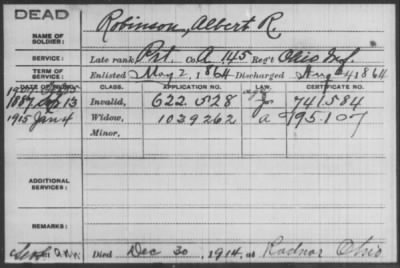 DEAD
NAME OF SOLDIER: Robinson, Albert R.
SERVICE: Late rank Pvt. Co. A, 145 Reg't Ohio Inf.
TERM OF SERVICE: Enlisted May 2, 1864 Discharged Aug 24 1864
DATE OF FILING. CLASS. APPLICATION NO. LAW. CERTIFICATE NO.
1887 13 Invalid, 622.528 741.584
1915 Jan 4 Widow, 1039262 a 795.107
Minor,
ADDITIONAL SERVICES:
REMARKS:
Died Dec 30, 1914, at Radnor Ohio